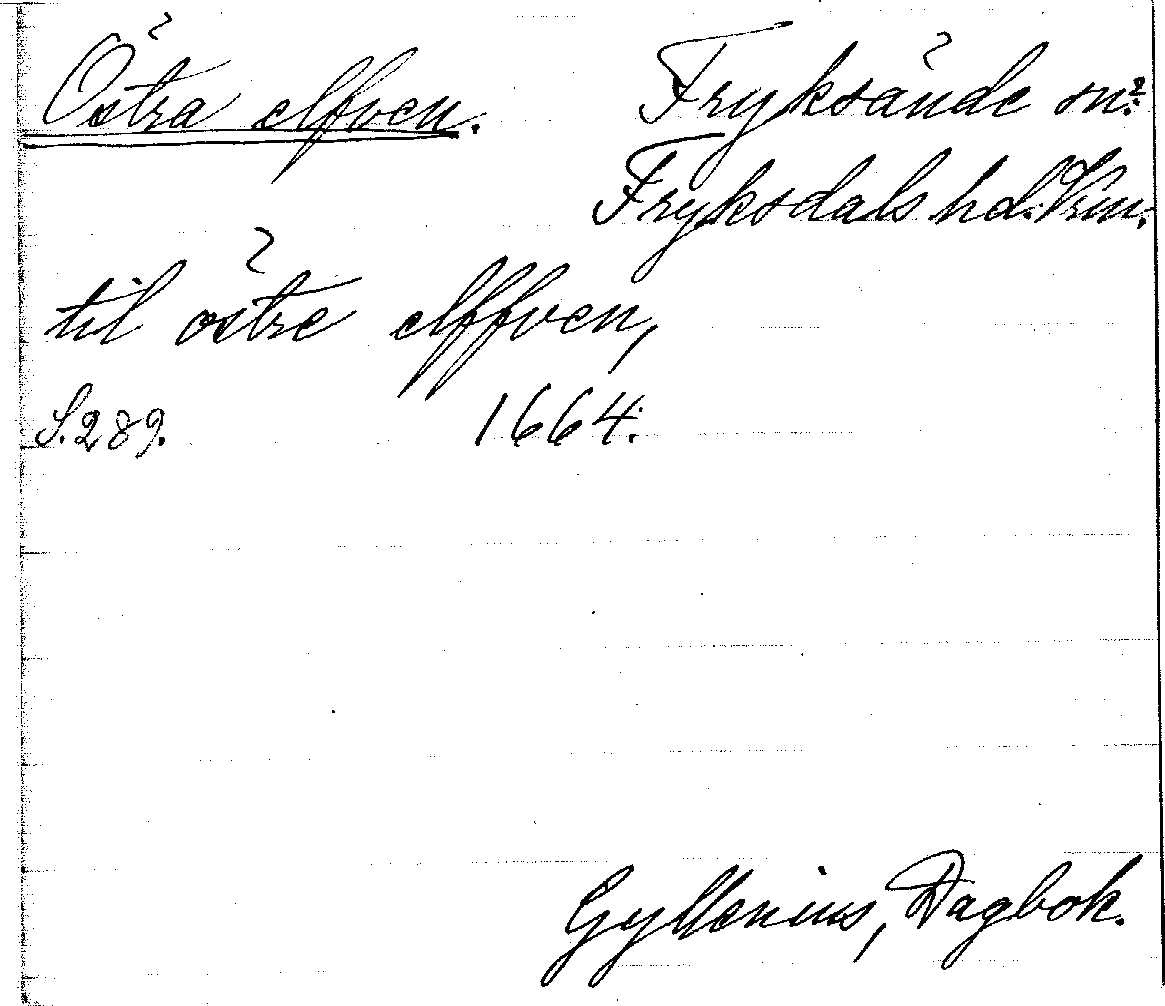 Östra elfven. Fryksände sn?
Fryksdals hd. Vrm.
til östre elffven,
S. 289. 1664.
Gyllenius, Dagbok.